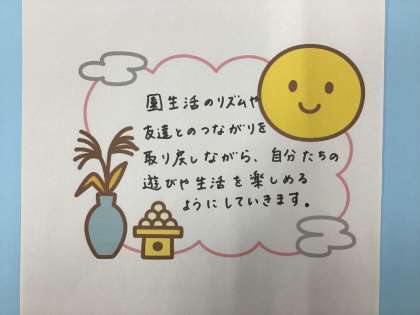 園生活のリズムや
友達とのつながりを
取り戻しながら、自分たちの
遊びや生活を楽しめる
ようにしていきます。